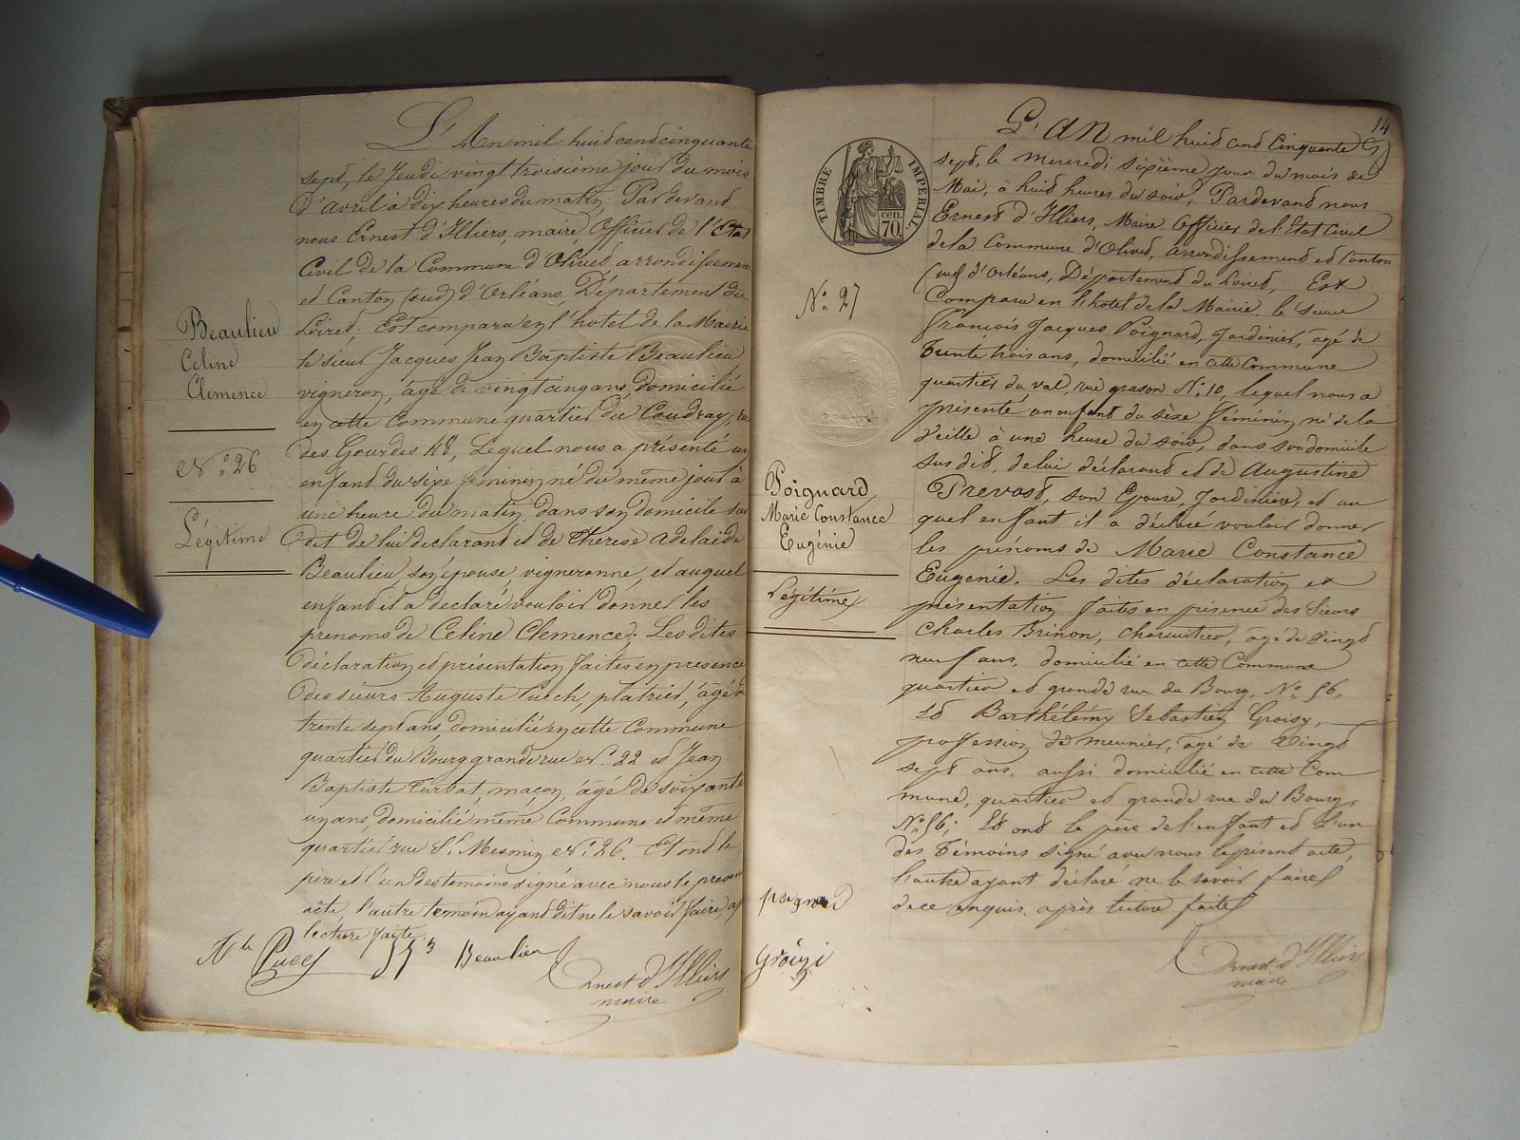 Beaulieu
Celine
Clemence
N° 26
Légitime
L'An mil huit cent cinquante
sept, le Jeudi vingt troisième jour du mois
d'Avril à dix heures du matin, Pardevant
nous Ernest d'Illiers, maire, Officier de l'Etat
Civil de la Commune d'Olivet arrondissement
et Canton (sud) d'Orléans, Département du
Loiret; Est comparu en l'hotel de la Mairie
le sieur Jacques Jean Baptiste Beaulieu
vigneron, âgé de vingt cinq ans, domicilié
en cette Commune quartier du Coudray, rue
des Gourdes 48, Lequel nous a présenté un
enfant du sexe féminin, né de même jour à
une heure du matin dans son domicile sus
dit de lui déclarant et de Therese Adelaide
Beaulieu, son épouse, vigneronne, et auquel
enfant il a declaré vouloir donner les
prenoms de Celine Clemence. Les dites
déclaration et présentation faites en presence
des sieurs Auguste Puech, plâtrier, âgé de
trente sept ans, domicilié en cette Commune
quartier du Bourg grande rue N° 22 et Jean
Baptiste Turbat, maçon, âgé de soixante
un ans, domicilié même Commune et même
quartier rue St Mesmin N° 26. Et ont le
père et l'un des temoins signé avec nous le present
acte, l'autre temoin ayant dit ne le savoir faire, ap
lecture faite
Puech Beaulieu
Ernest d'Illiers
maire
14
TIMBRE IMPERIAL
CEN.
70
N° 27
Poignard
Marie Constance
Eugénie
Légitime
L'AN mil huit cent cinquante
sept, le Mercredi sixième jour du mois de
Mai, à huit heures du soir, Pardevant nous
Ernest d'Illiers, Maire Officier de l'Etat Civil
de la Commune d'Olivet, arrondissement et Canton
(sud) d'Orléans, Département du Loiret, Est
Comparu en l'hotel de la Mairie le sieur
François Jacques Poignard, Jardinier, agé de
Trente trois ans, domicilié en cette Commune
quartier du val, rue N° 10, lequel nous a
présenté un enfant du sèxe féminin, né de la
veille à une heure du soir, dans son domicile
sus dit, de lui déclarant et de Augustine
Prevost, son Epouse, Jardinière, et au
quel enfant il a déclaré vouloir donner
les prénoms de Marie Constance
Eugenie. Les dites déclaration et
présentation faites en présence des Sieurs
Charles Brinon, charcutier, agé de vingt
neuf ans, domicilié en cette Commune
quartier et grande rue du Bourg, N° 56,
Et Barthélémy Sebastien Groisy,
profession de meunier, âgé de Vingt
sept ans, aussi domicilié en cette Com
mune, quartier et grande rue du Bourg,
N° 56; Et ont le père de l'enfant et l'un
des Témoins signé avec nous le présent acte,
l'autre ayant déclaré ne le savoir faire
de ce enquis, après lecture faite
poignard
Groisyi
Ernest d'Illiers
maire